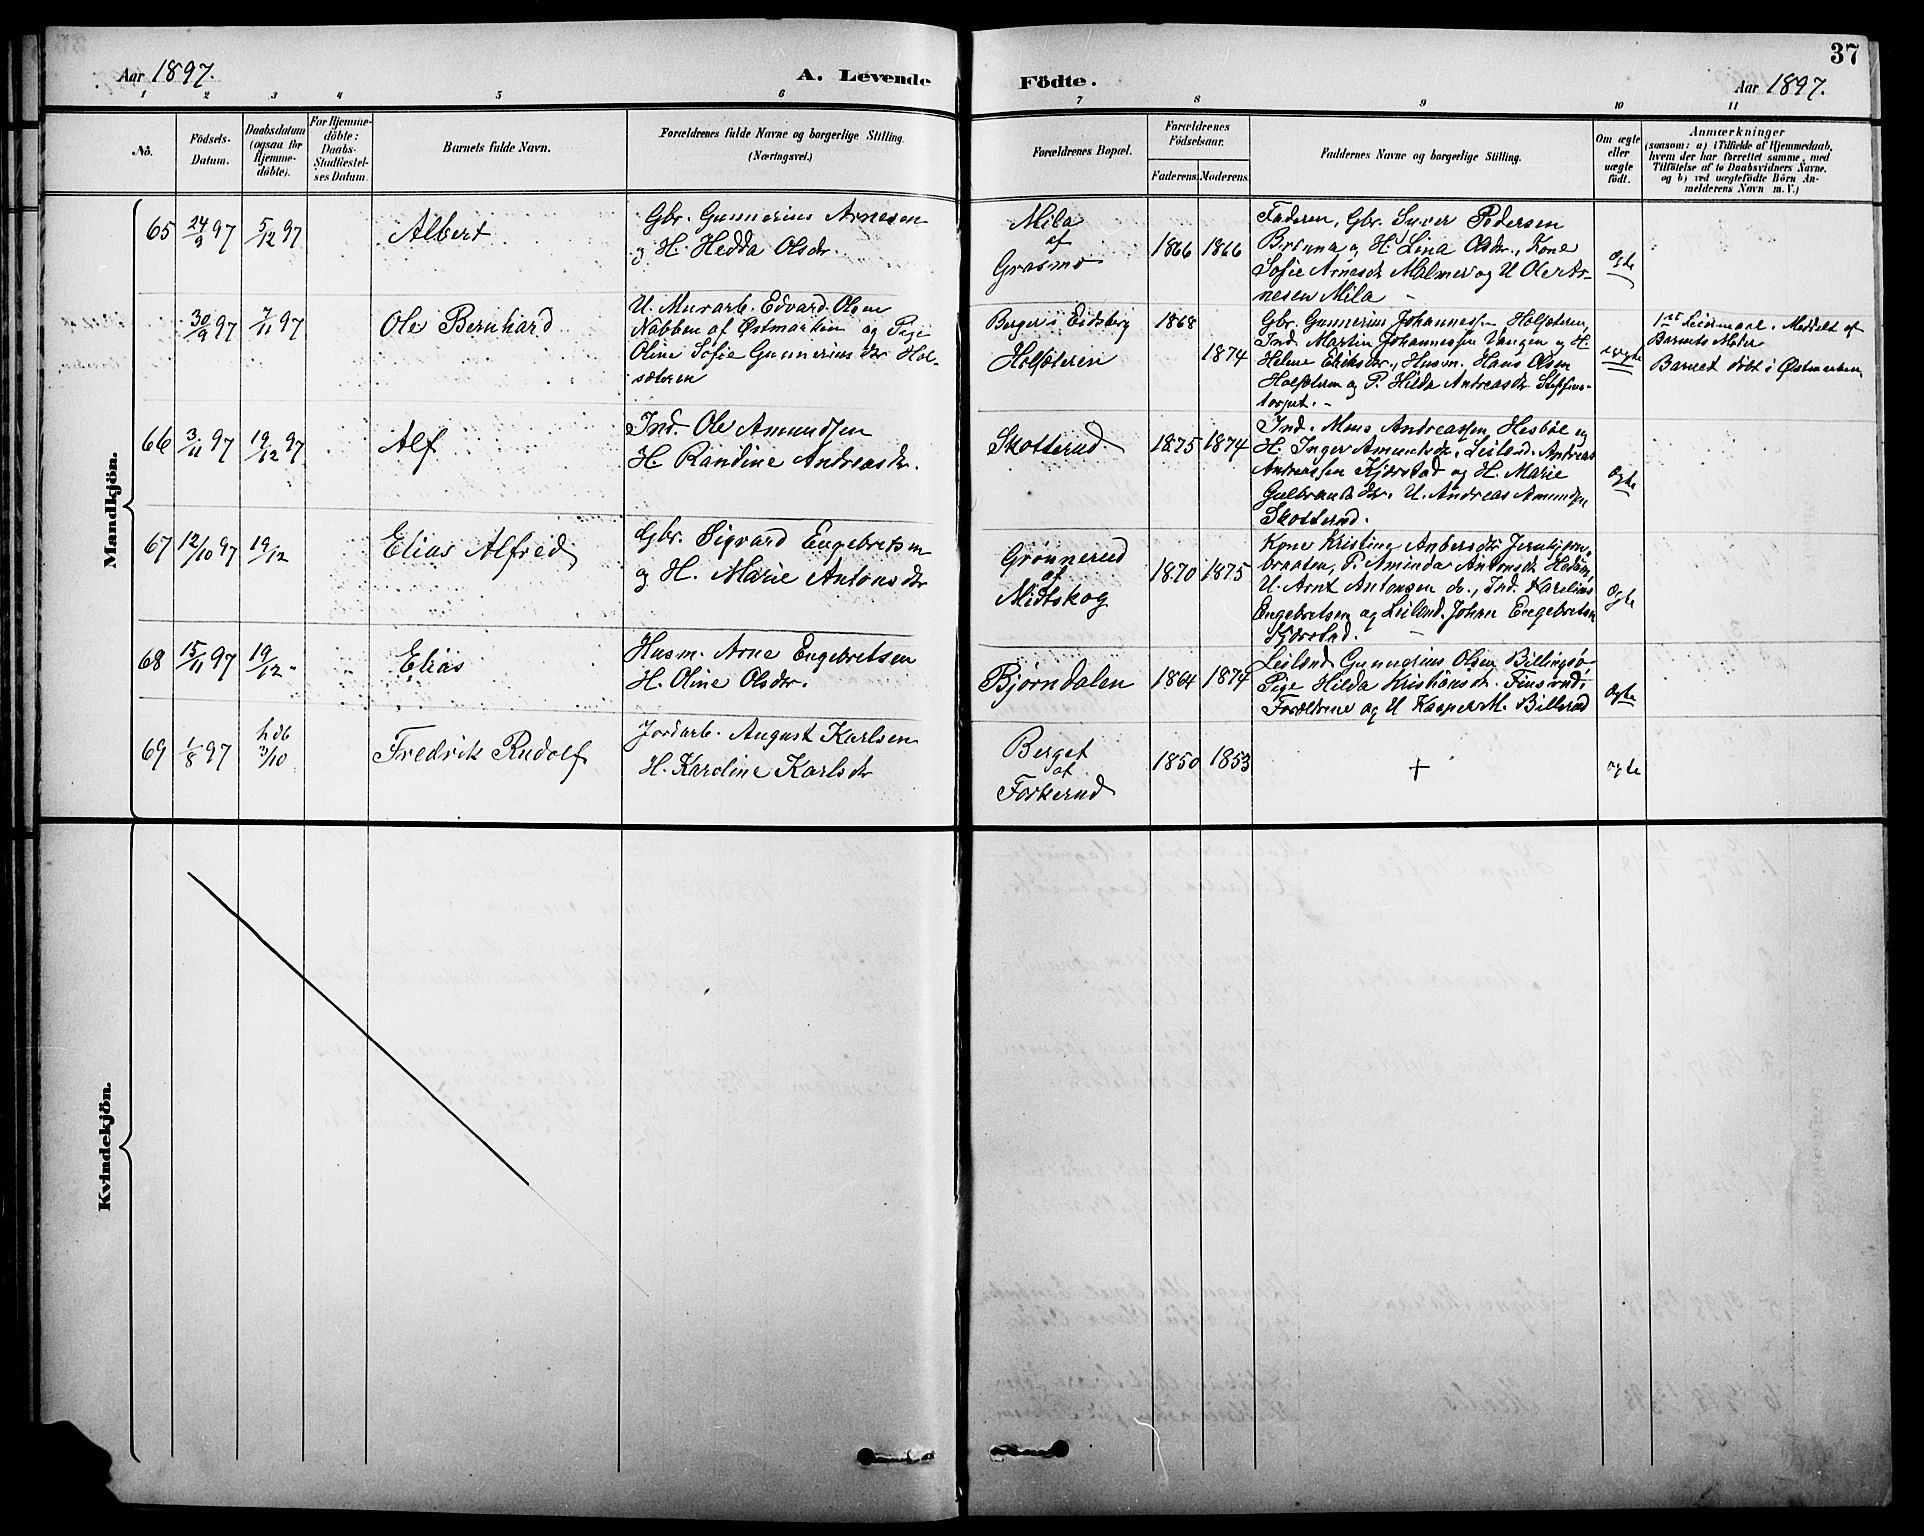 Aar 1897.
A. Levende Födte.
37
Aar 1897.
1 2 3 4 5 6 7 8 9 10 11
Nö.
Födsels-
Datum.
Daabsdatum
(ogsaa for
Hjemme-
döbte).
For Hjemme-
döbte:
Daabs-
Stadfæstel-
ses Datum.
Barnets fulde Navn.
Forældrenes fulde Navne og borgerlige Stilling.
(Næringsvei.)
Forældrenes Bopæl.
Forældrenes
Födselsaar.
Faderens. Moderens.
Faddernes Navne og borgerlige Stilling.
Om ægte
eller
uægte
födt.
Anmærkninger
(saasom: a) i Tilfælde af Hjemmedaab,
hvem der har forrettet samme, med
Tilföielse af to Daabsvidners Navne,
og b) ved uægtefödte Börn An-
melderens Navn m. V.)
Mandkjön.
65 24/9 97 5/12 97
Albert
Gbr. Gunnerius Arnesen
og H. Hedda Olsdr.
Mila
af
Grasmo
1866 1866
Faderen, Gbr. Syver Pedersen
Bruna og H. Lina Olsdr., Kone
Sofie Arnesdr Malmer og U Ole Ar-
nesen Mila –
Ægte
30/9 97 7/11 97
Ole Bernhard
U. Murarb. Edvard Olsen
Nabben af Østmarken og Pige
Oline Sofie Gunnerius dr Hol-
sæteren
Berger i Eidsberg
Holsæteren
1868
1874
Gbr. Gunnerius Johannessen Holsæteren,
Ind. Martin Johannessen Vangen og H.
Helene Eriksdr., Husm. Hans Olsen
Holsæteren og P. Hilda Andreasdr.
torpet. –
uægte
1ste Leiermaal. Meddelt af
Barnets Moder
Barnet døbt i Østmarken
66 3/11 97 19/12 97
Alf
Ind. Ole Amundsen
H. Randine Andreasdr.
Skotterud
1875 1874
Ind. Mons Andreassen, Hesbøl og
H. Inger Amundsdr, Leilend. Andreas
Andreassen Kjørstad og H. Marie
Gulbrandsdr. U. Andreas Amundsen
Skotterud.
Ægte
67 12/10 97 19/12
Elias Alfred
Gbr. Sigvard Engebretsen
og H. Marie Antonsdr
Grønnerud
af
Midtskog
1870 1875
Kone Kristine Andersdr
braaten, P. Aminda Antonsdr
U. Arnt Antonsen do., Ind. Karelius
Engebretsen og Leilend. Johan Engebretsen
Kjørstad. –
Ægte
68 15/11 97 19/12 -
Elias
Husm. Arne Engebretsen
H. Oline Olsdr.
Bjørndalen
1864 1874
Leilend Gunnerius Olsen Billingsø
Pige Hilda Kristiansdr. Finsrud,
Forældrene og U Kasper M. Billerud
Ægte
69 1/8 97
hdb
3/10
Fredrik Rudolf
Jordarb. August Karlsen
H. Karoline Karlsdr
Berget
af
Forkerud
1850 1853
+
ægte
Kvindekjön.